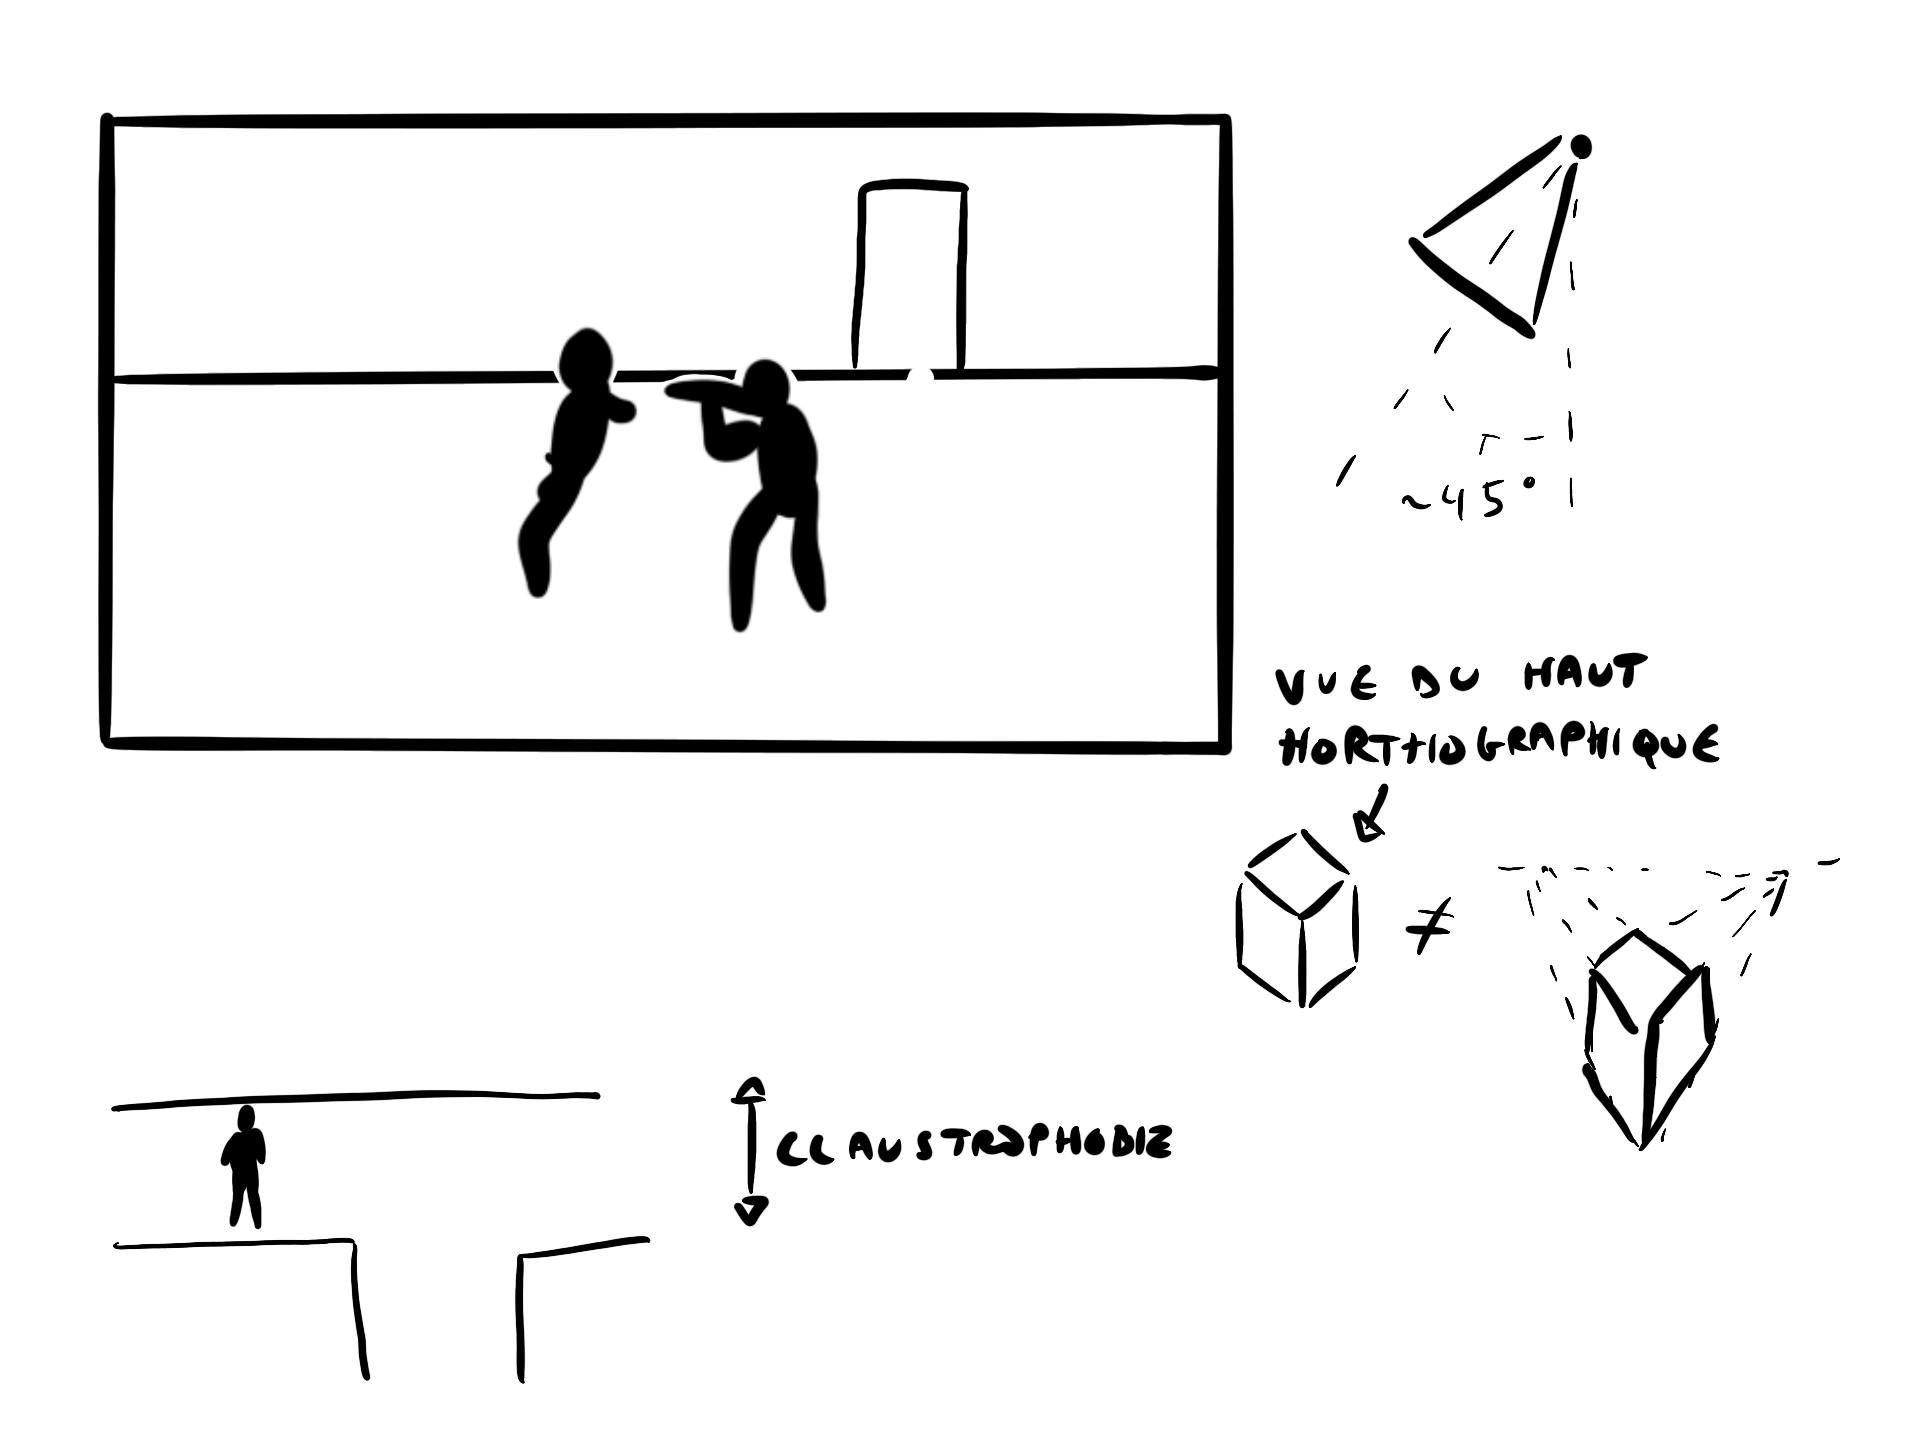 ~45°
VUE DU HAUT
HORTHOGRAPHIQUE
≠
CLAUSTROPHOBIE